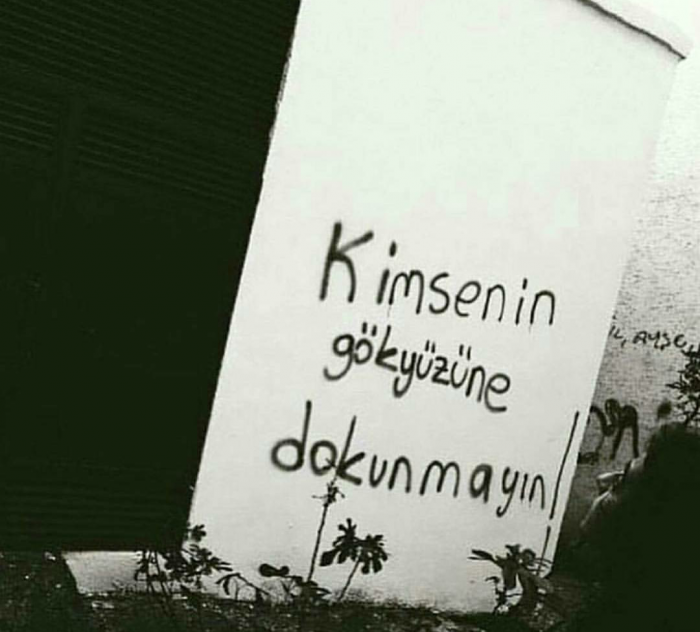 Kimsenin
gökyüzüne
dokunmayın!